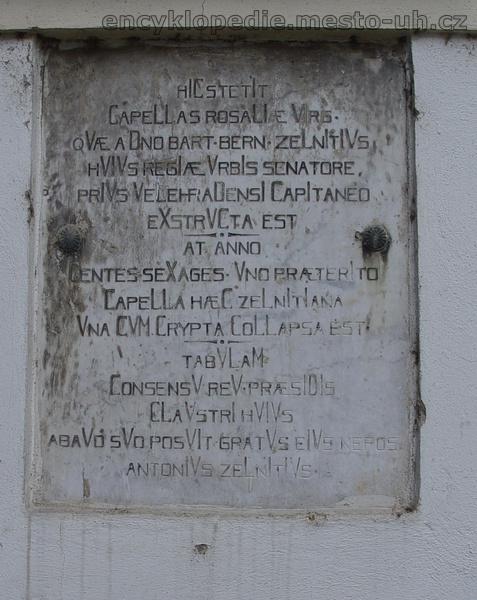 encyklopedie.mesto-uh.cz
HIC STETIT
CAPELLA S ROSALIÆ VIRG·
QVÆ A DNO BART· BERN· ZELNITIVS
HVIVS REGIÆ VRBIS SENATORE,
PRIVS VELEHRADENSI CAPITANEO
EXSTRVCTA EST
AT ANNO
CENTES·SEXAGES· VNO PRÆTERITO
CAPELLA HÆC ZELNITIANA
VNA CVM CRYPTA COLLAPSA EST·
TABVLAM
CONSENSV REV· PRÆSIDIS
CLAVSTRI HVIVS
ABAVO SVO POSVIT GRATVS EIVS NEPOS
ANTONIVS ZELNITIVS·